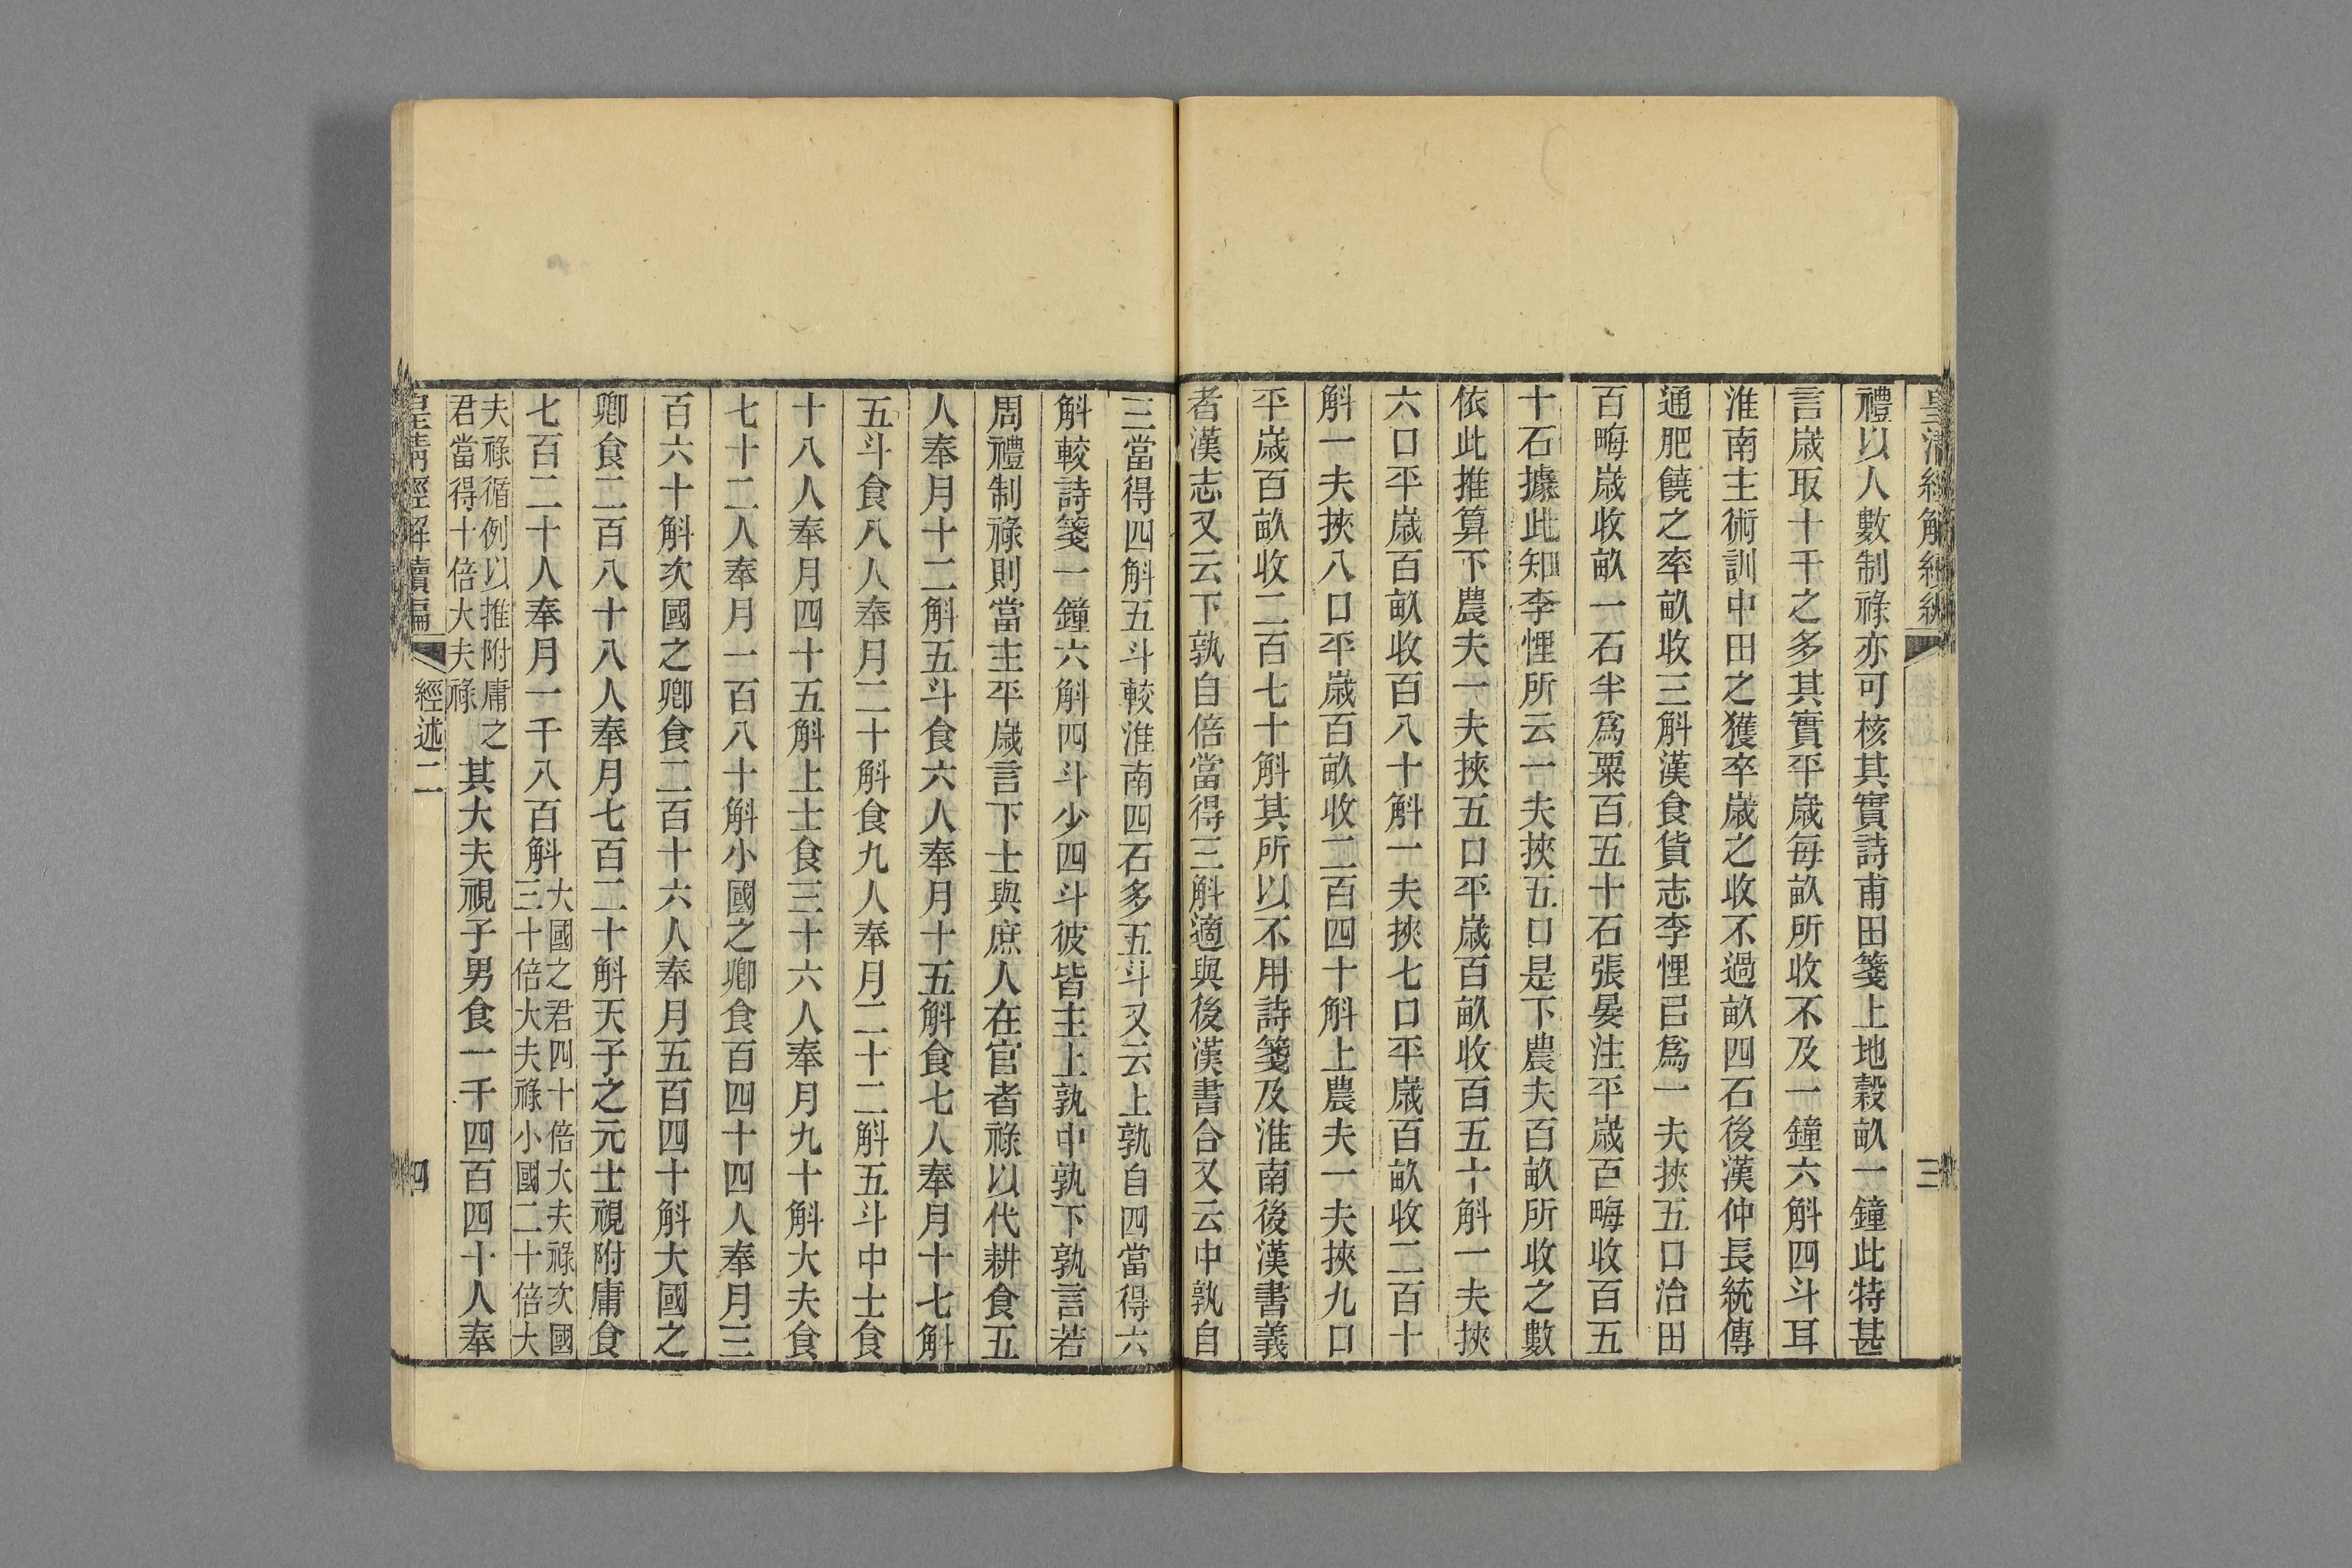 皇清經解續編 三
禮以人數制祿亦可核其實詩甫田箋上地穀畝一鐘此特甚
言歲取十千之多其實平歲每畝所收不及一鐘六斛四斗耳
淮南主術訓中田之獲卒歲之收不過畝四石後漢仲長統傳
通肥饒之率畝收三斛漢食貨志李悝曰爲一夫挾五口治田
百晦歲收畝一石半爲粟百五十石張晏注平歲百晦收百五
十石據此知李悝所云一夫挾五口是下農夫百畝所收之數
依此推算下農夫一夫挾五口平歲百畝收百五十斛一夫挾
六口平歲百畝收百八十斛一夫挾七口平歲百畝收二百十
斛一夫挾八口平歲百畝收二百四十斛上農夫一夫挾九口
平歲百畝收二百七十斛其所以不用詩箋及淮南後漢書義
者漢志又云下孰自倍當得三斛適與後漢書合又云中孰自
三當得四斛五斗較淮南四石多五斗又云上孰自四當得六
斛較詩箋一鐘六斛四斗少四斗彼皆主上孰中孰下孰言若
周禮制祿則當主平歲言下士與庶人在官者祿以代耕食五
人奉月十二斛五斗食六人奉月十五斛食七人奉月十七斛
五斗食八人奉月二十斛食九人奉月二十二斛五斗中士食
十八人奉月四十五斛上士食三十六人奉月九十斛大夫食
七十二人奉月一百八十斛小國之卿食百四十四人奉月三
百六十斛次國之卿食二百十六人奉月五百四十斛大國之
卿食二百八十八人奉月七百二十斛天子之元士視附庸食
七百二十人奉月一千八百斛大國之君四十倍大夫祿次國
三十倍大夫祿小國二十倍大
夫祿循例以推附庸之
君當得十倍大夫祿其大夫視子男食一千四百四十人奉
皇清經解續編 經述二 四